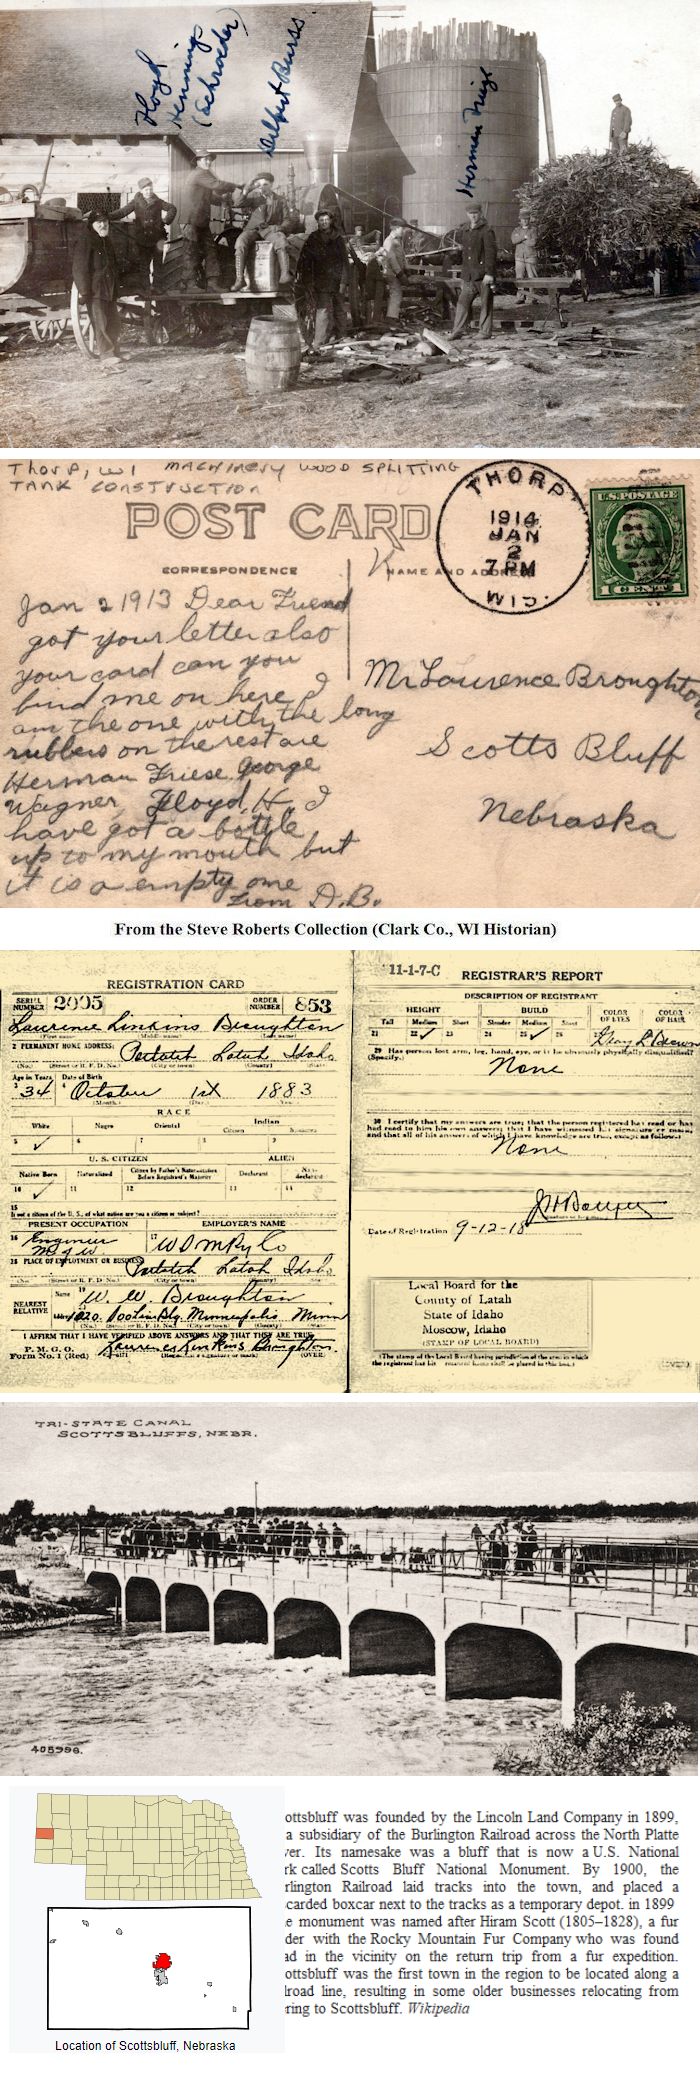 Floyd
Hennings
(Schroeder)
Delbert Burss.
Herman Friese
Thorp, WI MACHINERY WOOD SPLITTING
TANK CONSTRUCTION
POST CARD
CORRESPONDENCE
NAME AND ADDRESS
THORP
1914
JAN
2
7 PM
WIS.
U.S. POSTAGE
1 CENT 1
Jan 2 1913 Dear Friend
got your letter also
your card can you
find me on here I
am the one with the long
rubbers on the rest are
Herman Friese George
Wagner, Floyd, H, I
have got a bottle
up to my mouth but
it is a empty one
From D.B.
Mr Laurence Broughton
Scotts Bluff
Nebraska
From the Steve Roberts Collection (Clark Co., WI Historian)
REGISTRATION CARD
SERIAL NUMBER 2005 ORDER NUMBER 853
Laurence Linkins Broughton
(First name) (Middle name) (Last name)
2 PERMANENT HOME ADDRESS:
Potlatch Latah Idaho
(No.) (Street or R. F. D. No.) (City or town) (County) (State)
Age in Years Date of Birth
3 34 4 October 1st 1883
(Month.) (Day.) (Year.)
RACE
White Negro Oriental Indian
Citizen
5 ✓ 6 7 8 9
U. S. CITIZEN ALIEN
Native Born Naturalized Citizen by Father's Naturalization Before Registrant's Majority Declarant Non-declarant
10 ✓ 11 12 13 14
15
If not a citizen of the U. S., of what nation are you a citizen or subject?
PRESENT OCCUPATION EMPLOYER'S NAME
16 Engineer
M of W 17 W I & M Ry Co
18 PLACE OF EMPLOYMENT OR BUSINESS:
Potlatch Latah Idaho
(No.) (Street or R. F. D. No.) (City or town) (County) (State)
NEAREST RELATIVE
Name 19 W. W. Broughton
Address 20 1020 Soo Line Bldg Minneapolis Minn
(No.) (Street or R. F. D. No.) (City or town) (County) (State)
I AFFIRM THAT I HAVE VERIFIED ABOVE ANSWERS AND THAT THEY ARE TRUE
P. M. G. O.
Form No. 1 (Red) Laurence Linkins Broughton.
(Registrant's signature or mark) (OVER)
11-1-7-C REGISTRAR'S REPORT
DESCRIPTION OF REGISTRANT
HEIGHT BUILD COLOR OF EYES COLOR OF HAIR
Tall Medium Short Slender Medium Stout
21 22 ✓ 23 24 25 ✓ 26 27 Gray 28 Brown
29 Has person lost arm, leg, hand, eye, or is he obviously physically disqualified?
(Specify.)
None
30 I certify that my answers are true; that the person registered has read or has
had read to him his own answers; that I have witnessed his signature or mark,
and that all of his answers of which I have knowledge are true, except as follows:
None
Date of Registration 9-12-18
Local Board for the
County of Latah
State of Idaho
Moscow, Idaho
(STAMP OF LOCAL BOARD)
(The stamp of the Local Board having jurisdiction of the area in which
the registrant has his permanent home shall be placed in this box.)
(OVER)
TRI-STATE CANAL
SCOTTSBLUFFS, NEBR.
405998.
ottsbluff was founded by the Lincoln Land Company in 1899,
a subsidiary of the Burlington Railroad across the North Platte
ver. Its namesake was a bluff that is now a U.S. National
rk called Scotts Bluff National Monument. By 1900, the
rlington Railroad laid tracks into the town, and placed a
scarded boxcar next to the tracks as a temporary depot. in 1899
e monument was named after Hiram Scott (1805–1828), a fur
der with the Rocky Mountain Fur Company who was found
ad in the vicinity on the return trip from a fur expedition.
ottsbluff was the first town in the region to be located along a
lroad line, resulting in some older businesses relocating from
ring to Scottsbluff. Wikipedia
Location of Scottsbluff, Nebraska